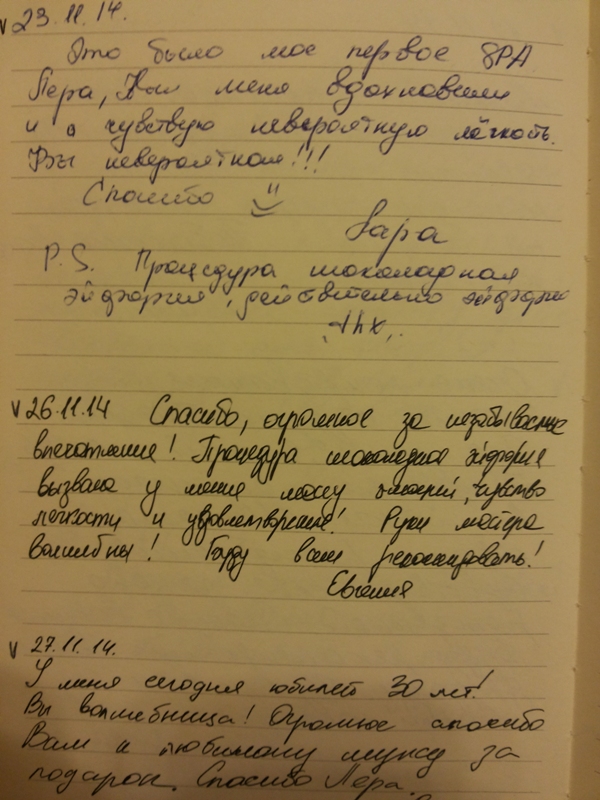 v 23.11.14.
Это было мое первое SPA.
Лера, Вы меня вдохновили
и я чувствую невероятную лёгкость.
Вы невероятная!!!
Спасибо
Зара
P.S. Процедура шоколадная
эйфория, действительно эйфория
thx,
v 26.11.14 Спасибо, огромное за незабываемые
впечатление! Процедура шоколадная эйфория
вызвала у меня массу эмоций, чувство
легкости и удовлетворение! Руки мастера
волшебны! Буду всем рекомендовать!
Евгения
v 27.11.14.
У меня сегодня юбилей 30 лет!
Вы волшебница! Огромное спасибо
Вам и любимому мужу за
подарок. Спасибо Лера.